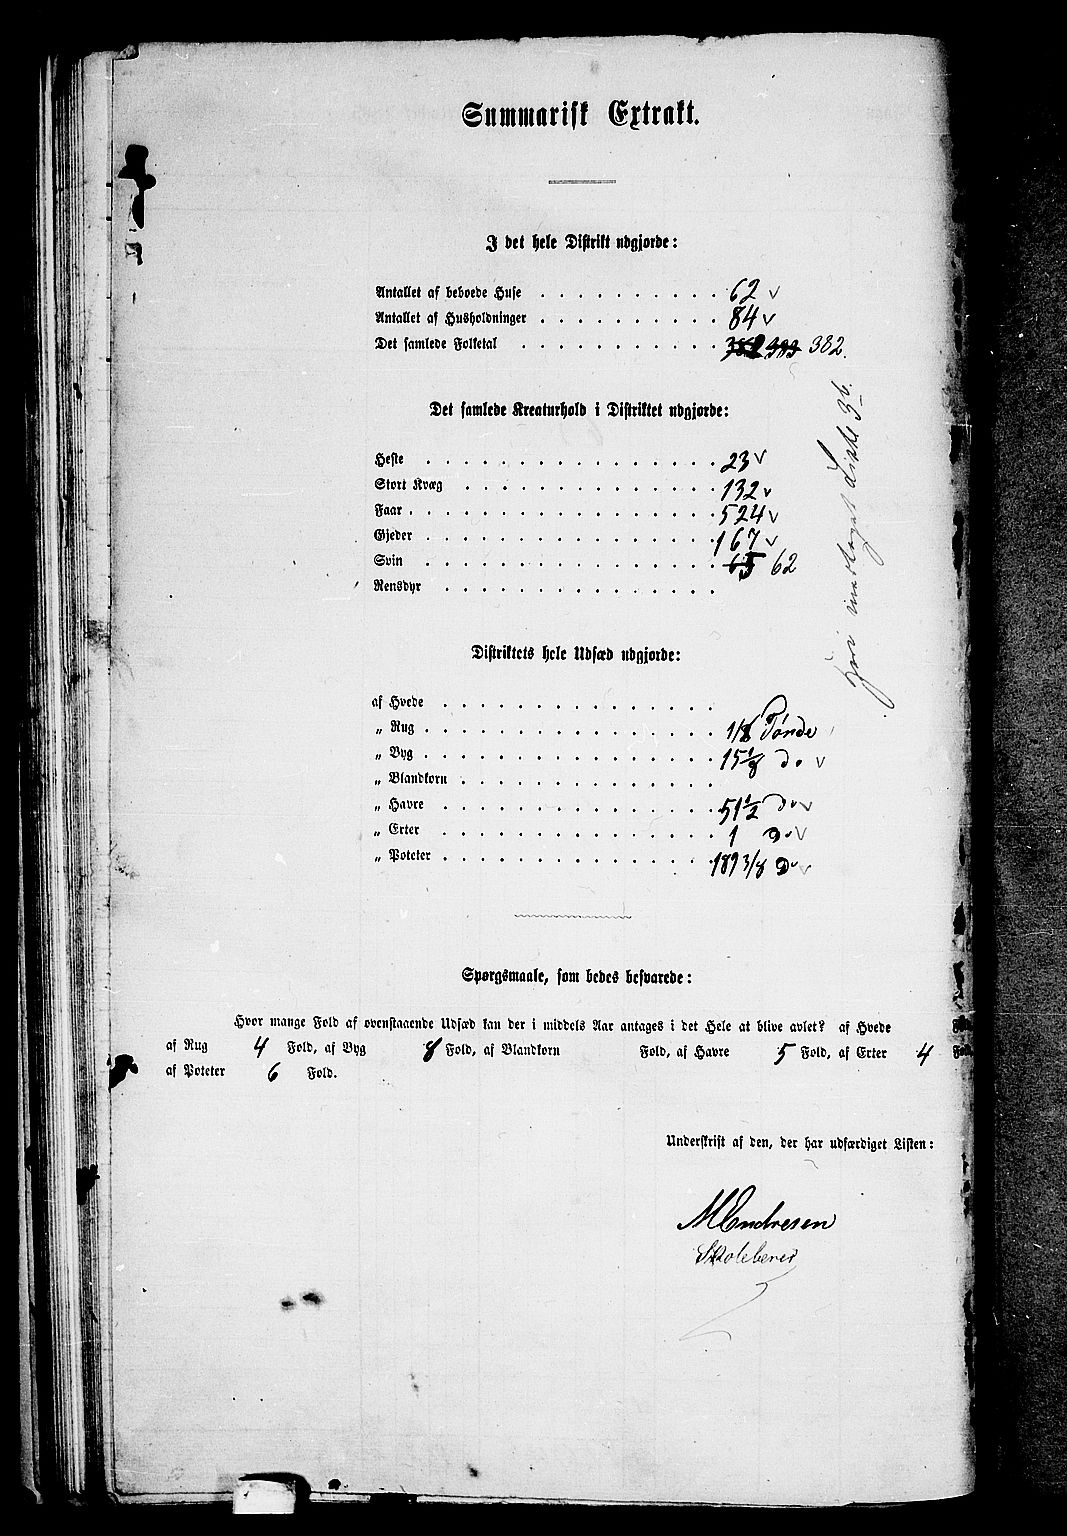 Summarisk Extrakt.
I det hele Distrikt udgjorde:
Antallet af beboede Huse . . . . . . . . 62 v
Antallet af Husholdninger . . . . . . . . 84 v
Det samlede Folketal . . . . . . . . . 383 382.
Det samlede Kreaturhold i Distriktet udgjorde:
Heste . . . . . . . . . . . . . 23 v
Stort Kvæg . . . . . . . . . . . 132 v
Faar . . . . . . . . . . . . . . 524 v
Gjeder . . . . . . . . . . . . . 167 v
Svin . . . . . . . . . . . . . 65 62
Rensdyr . . . . . . . . . . . .
heri medtaget Liste 3b.
Distriktets hele Udsæd udgjorde:
af Hvede . . . . . . . . . . . .
„ Rug . . . . . . . . . . . . . 1/8 Tønde
„ Byg . . . . . . . . . . . . . 15 1/8 do v
„ Blandkorn . . . . . . . . . . .
„ Havre . . . . . . . . . . . . 51 1/2 do v
„ Erter . . . . . . . . . . . . 1 do v
„ Poteter . . . . . . . . . . . . 189 3/8 do v
Spørgsmaale, som bedes besvarede:
Hvor mange Fold af ovenstaaende Udsæd kan der i middels Aar antages i det Hele at blive avlet? af Hvede
af Rug 4 Fold, af Byg 8 Fold, af Blandkorn Fold, af Havre 5 Fold, af Erter 4 Fold
af Poteter 6 Fold.
Underskrift af den, der har udfærdiget Listen:
MEndresen
Skolelærer